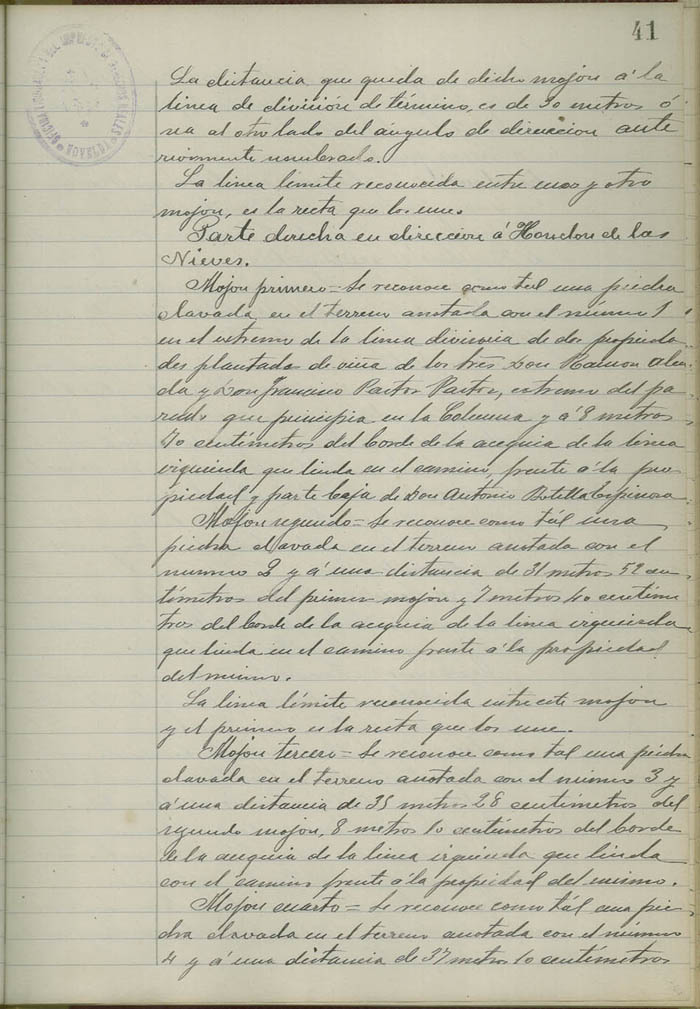 41
La distancia que queda de dicho mojon á la
linea de división de término, es de 30 metros ó
sea al otro lado del ángulo de direccion ante
riormente nombrado.
La linea limite reconocida entre uno y otro
mojon, es la recta que los une.
Parte derecha en direccion á Hondon de las
Nieves.
Mojon primero = Se reconoce como tal una piedra
clavada en el terreno anotada con el número 1
en el extremo de la linea divisoria de dos propieda
des plantadas de viña de los tres Don Ramon
da y Don Francisco Pastor Pastor, extremo del pa
que principia en la Columna y á 8 metros
70 centímetros del borde de la acequia de la linea
izquierda que linda en el camino, frente á la pro
piedad y parte baja de Don Antonio Botella Espinosa
Mojon segundo = Se reconoce como tál una
piedra clavada en el terreno anotada con el
numero 2 y á una distancia de 31 metros 52 cen
tímetros del primer mojon y 7 metros 40 centíme
tros del borde de la acequia de la linea izquierda
que linda en el camino frente á la propiedad
del mismo.
La linea límite reconocida entre este mojon
y el primero es la recta que los une.
Mojon tercero = Se reconoce como tal una piedra
clavada en el terreno anotada con el número 3 y
á una distancia de 35 metros 28 centímetros del
segundo mojon, 8 metros 10 centímetros del borde
de la acequia de la linea izquierda que linda
con el camino frente á la propiedad del mismo.
Mojon cuarto = Se reconoce como tál una pie
dra clavada en el terreno anotada con el número
4 y á una distancia de 37 metros 10 centímetros